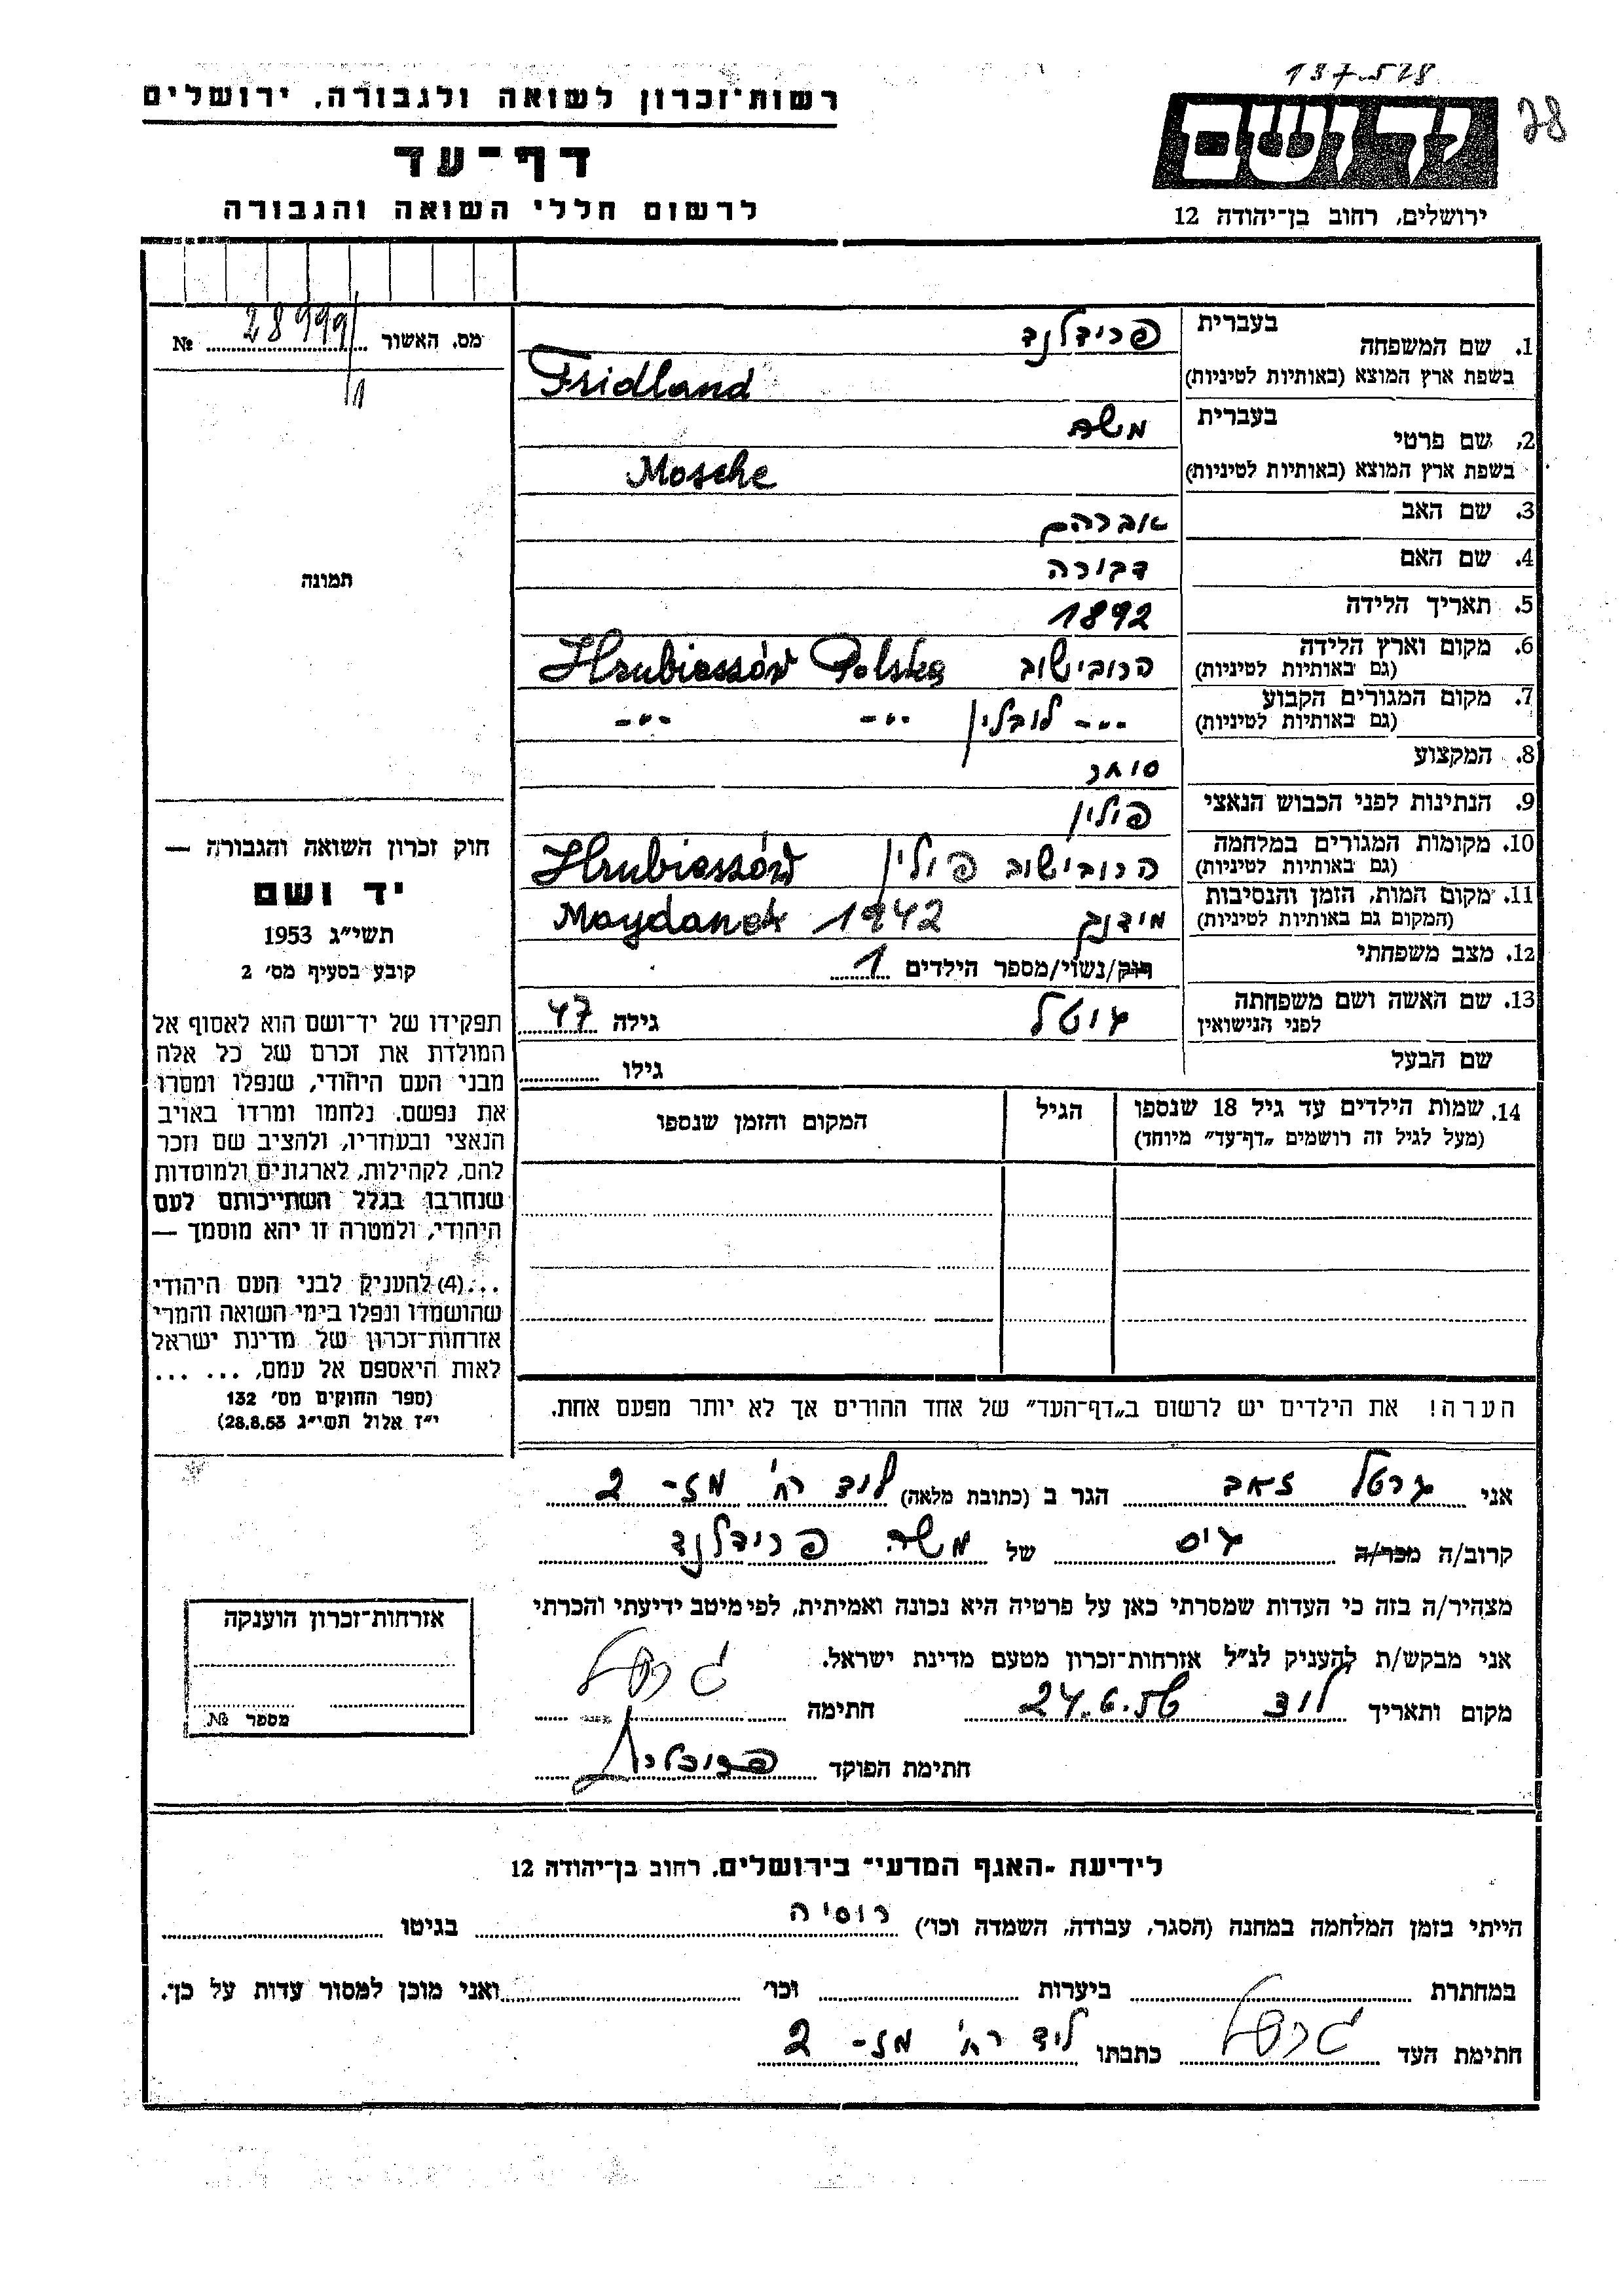 137-528
28
רשות־זכרון לשואה ולגבורה, ירושלים
ידושם
דף־עד
לרשום חללי השואה והגבורה
ירושלים, רחוב בן־יהודה 12
מס. האשור 28999 №
1. שם המשפחה בעברית פרידלנד
בשפת ארץ המוצא (באותיות לטיניות) Fridland
2. שם פרטי בעברית משה
בשפת ארץ המוצא (באותיות לטיניות) Mosche
3. שם האב אברהם
4. שם האם דבורה
תמונה
5. תאריך הלידה 1892
6. מקום וארץ הלידה (גם באותיות לטיניות) הרובישוב Hrubieszów Polska
7. מקום המגורים הקבוע (גם באותיות לטיניות) -"- לובלין -"- -"-
8. המקצוע סוחר
9. הנתינות לפני הכבוש הנאצי פולין
10. מקומות המגורים במלחמה (גם באותיות לטיניות) הרובישוב פולין Hrubieszów
11. מקום המות, הזמן והנסיבות (המקום גם באותיות לטיניות) מידנק Maydanek 1942
12. מצב משפחתי רווק/נשוי/מספר הילדים 1
13. שם האשה ושם משפחתה לפני הנישואין גיטל גילה 47
שם הבעל גילו
14. שמות הילדים עד גיל 18 שנספו (מעל לגיל זה רושמים „דף־עד” מיוחד) הגיל המקום והזמן שנספו
חוק זכרון השואה והגבורה —
יד ושם
תשי״ג 1953
קובע בסעיף מס׳ 2
תפקידו של יד־ושם הוא לאסוף אל
המולדת את זכרם של כל אלה
מבני העם היהודי, שנפלו ומסרו
את נפשם. נלחמו ומרדו באויב
הנאצי ובעוזריו, ולהציב שם וזכר
להם, לקהילות, לארגונים ולמוסדות
שנחרבו בגלל השתייכותם לעם
היהודי, ולמטרה זו יהא מוסמך —
...(4) להעניק לבני העם היהודי
שהושמדו ונפלו בימי השואה והמרי
אזרחות־זכרון של מדינת ישראל
לאות היאספם אל עמם, ... ...
(ספר החוקים מס׳ 132
י״ז אלול תשי״ג 28.8.53)
הערה! את הילדים יש לרשום ב„דף־העד” של אחד ההורים אך לא יותר מפעם אחת.
אני גרטל זאב הגר ב (כתובת מלאה) לוד רח׳ 2
קרוב/ה מכר/ה גיס של משה פרידלנד
מצהיר/ה בזה כי העדות שמסרתי כאן על פרטיה היא נכונה ואמיתית, לפי מיטב ידיעתי והכרתי
אני מבקש/ת להעניק לנ״ל אזרחות־זכרון מטעם מדינת ישראל.
מקום ותאריך לוד 24.6.56 חתימה גרטל
חתימת הפוקד
אזרחות־זכרון הוענקה
מספר №
לידיעת ־האגף המדעי־ בירושלים, רחוב בן־יהודה 12
הייתי בזמן המלחמה במחנה (הסגר, עבודה, השמדה וכו׳) רוסיה בגיטו
במחתרת ביערות וכו׳ ואני מוכן למסור עדות על כך.
חתימת העד גרטל כתבתו לוד רח׳ 2